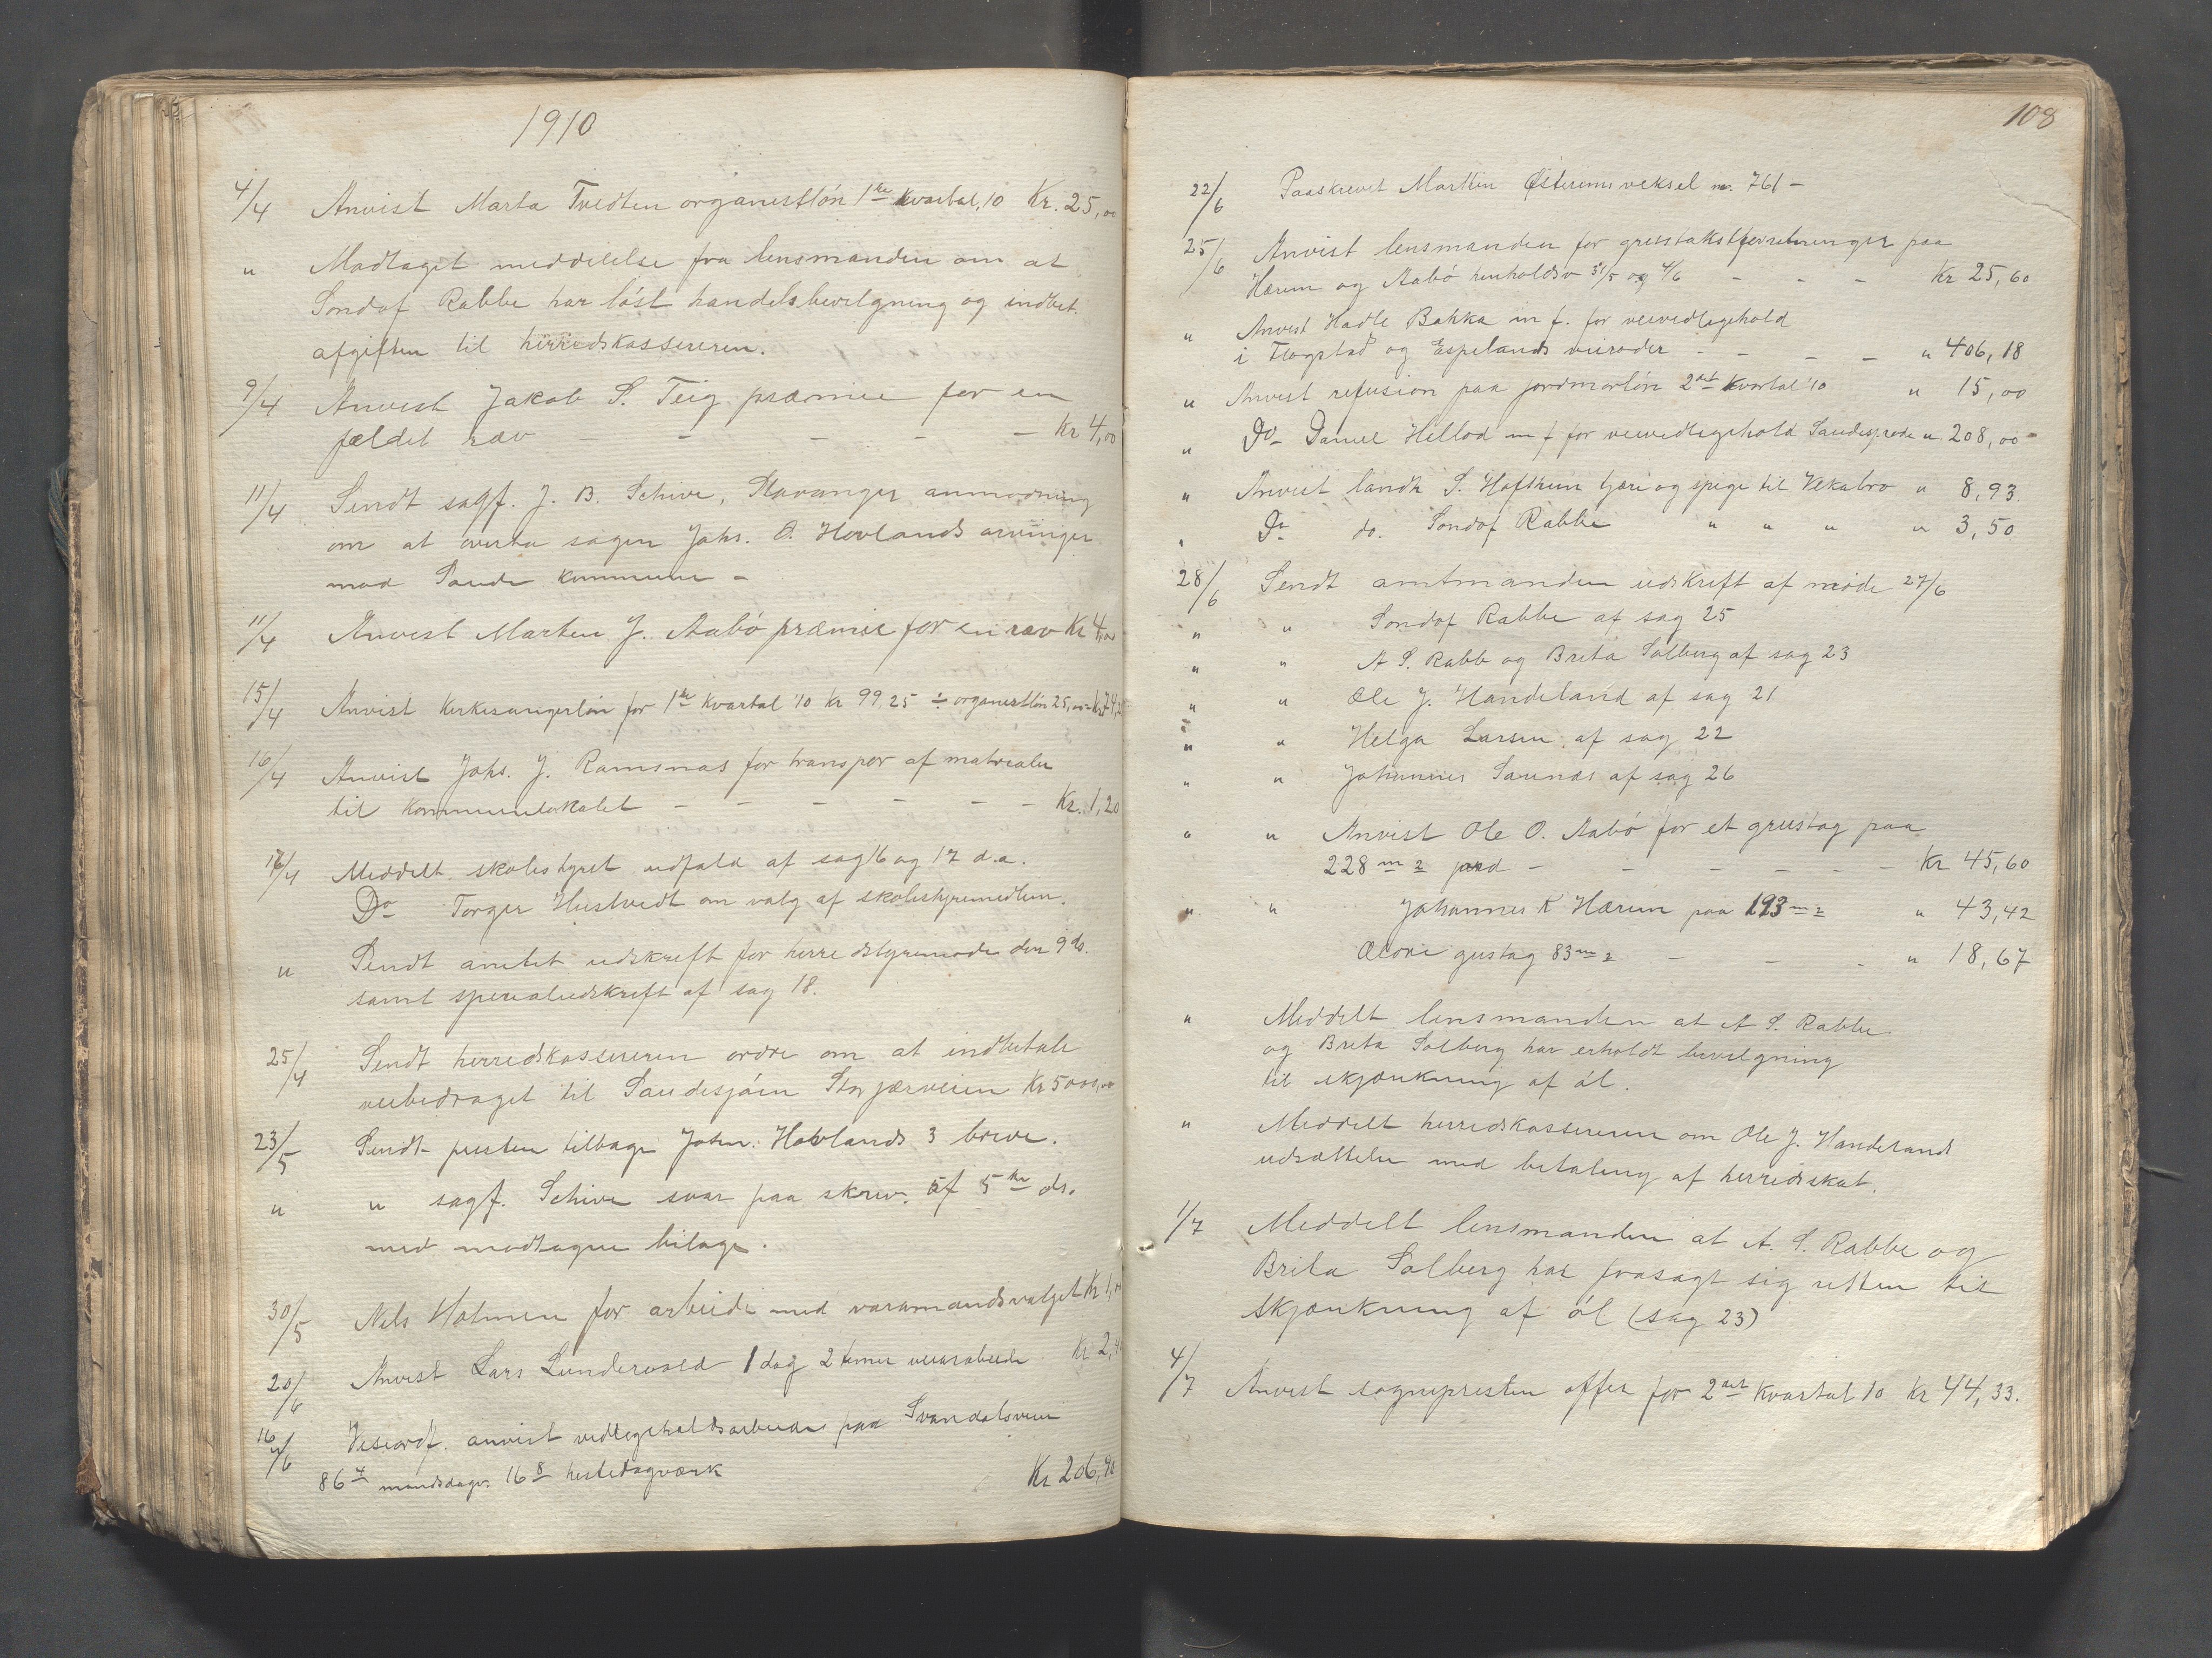 1910
4/4 Anvist Marta Tvedten organistløn 1ste kvartal, 10 Kr. 25,00
" Modtaget meddelelse fra lensmanden om at
Sondof Rabbe har løst handelsbevilgning og indbet.
afgiften til herredskassereren.
9/4 Anvist Jakob S. Teig præmie for en
fældet ræv – – – – – Kr 4,00
11/4 Sendt sagf. J. B. Schive, Stavanger anmodning
om at overta sagen Johs. O. Hovlands arvinger
mod Saude kommune –
11/4 Anvist Marten J. Aabø præmie for en ræv Kr 4,00
15/4 Anvist Kirkesangerløn for 1ste kvartal '10 kr 99,25 ÷ organistløn 25,00 =
16/4 Anvist Johs. J. Ramsnas for transpor af matrialer
til kommunelokalet – – – – – – Kr. 1,20
16/4 Meddelt skolestyret udfald af sag 16 og 17 d.a.
Do Torger Hustvedt om valg af skolestyremedlem.
" Sendt amtet udskrift for herredstyremøde den 9 ds.
samt specialudskrift af sag 18.
25/4 Sendt herredskassereren ordre om at indbetale
veibedraget til Saudesjøen Storjærveien Kr 5000,00
23/5 Sendt presten tilbage John. Hovlands 3 breve.
" " sagf. Schive svar paa skriv. af 5te ds.
med modtagne bilage.
30/5 Nils Holmen for arbeide med varamandsvalget Kr 1,00
20/6 Anvist Lars Lundervold 1 dag 2 timer veiarabeide Kr 2,
16/6 Viseordf. anvist vedlegeholdsarbeide paa Svandalsveien
86 mandsdagv. 16 hestedagværk Kr 206,90
108
22/6 Paaskrevet Marttin Østrems veksel nr. 761 –
25/6 Anvist lensmanden for grustakstforretninger paa
Hærem og Aabø henholdsv 31/5 og 4/6 – – – Kr 25,60
" Anvist Hadle Bakka m f. for veivedlegehold
i Flogstad og Espelands veiroder – – – – " 406,18
" Anvist refusion paa jordmorløn 2det kvartal '10 " 15,00
" Do – Daniel Helland m f for veivedlegehold Saudesj.rode " 208,00 –
" Anvist landh S. Hoftrun tjære og spiger til Vekabro " 8,93
" Do do. Sondof Rabbe " " " " 3,50
28/6 Sendt amtmanden udskrift af møde 27/6
" " Sondof Rabbe af sag 25
" " A S. Rabb og Brita Solberg af sag 23
" " Ole J. Handeland af sag 21
" " Helga Larsen af sag 22
" " Johannes Saunes af sag 26
" " Anvist Ole O. Aabø for et grustag paa
228 m 2 jord – – – – – – Kr 45,60
" " Johannes K Hærem paa 193 m 2 " 43,42
grustag 83 m 2 – – – " 18,67
" Meddelt lensmanden at A S. Rabbe
og Brita Solberg har erholdt bevilgning
til skjænkning af øl.
" Meddelt herredskassereren om Ole J. Handelands
udsættelse med betaling af herredsskat.
1/7 Meddelt lensmanden at A. S. Rabbe og
Brita Solberg har frasagt sig retten til
skjænkning af øl (sag 23)
4/7 Anvist sognepresten offer for 2det kvartal 10 Kr 44,33.